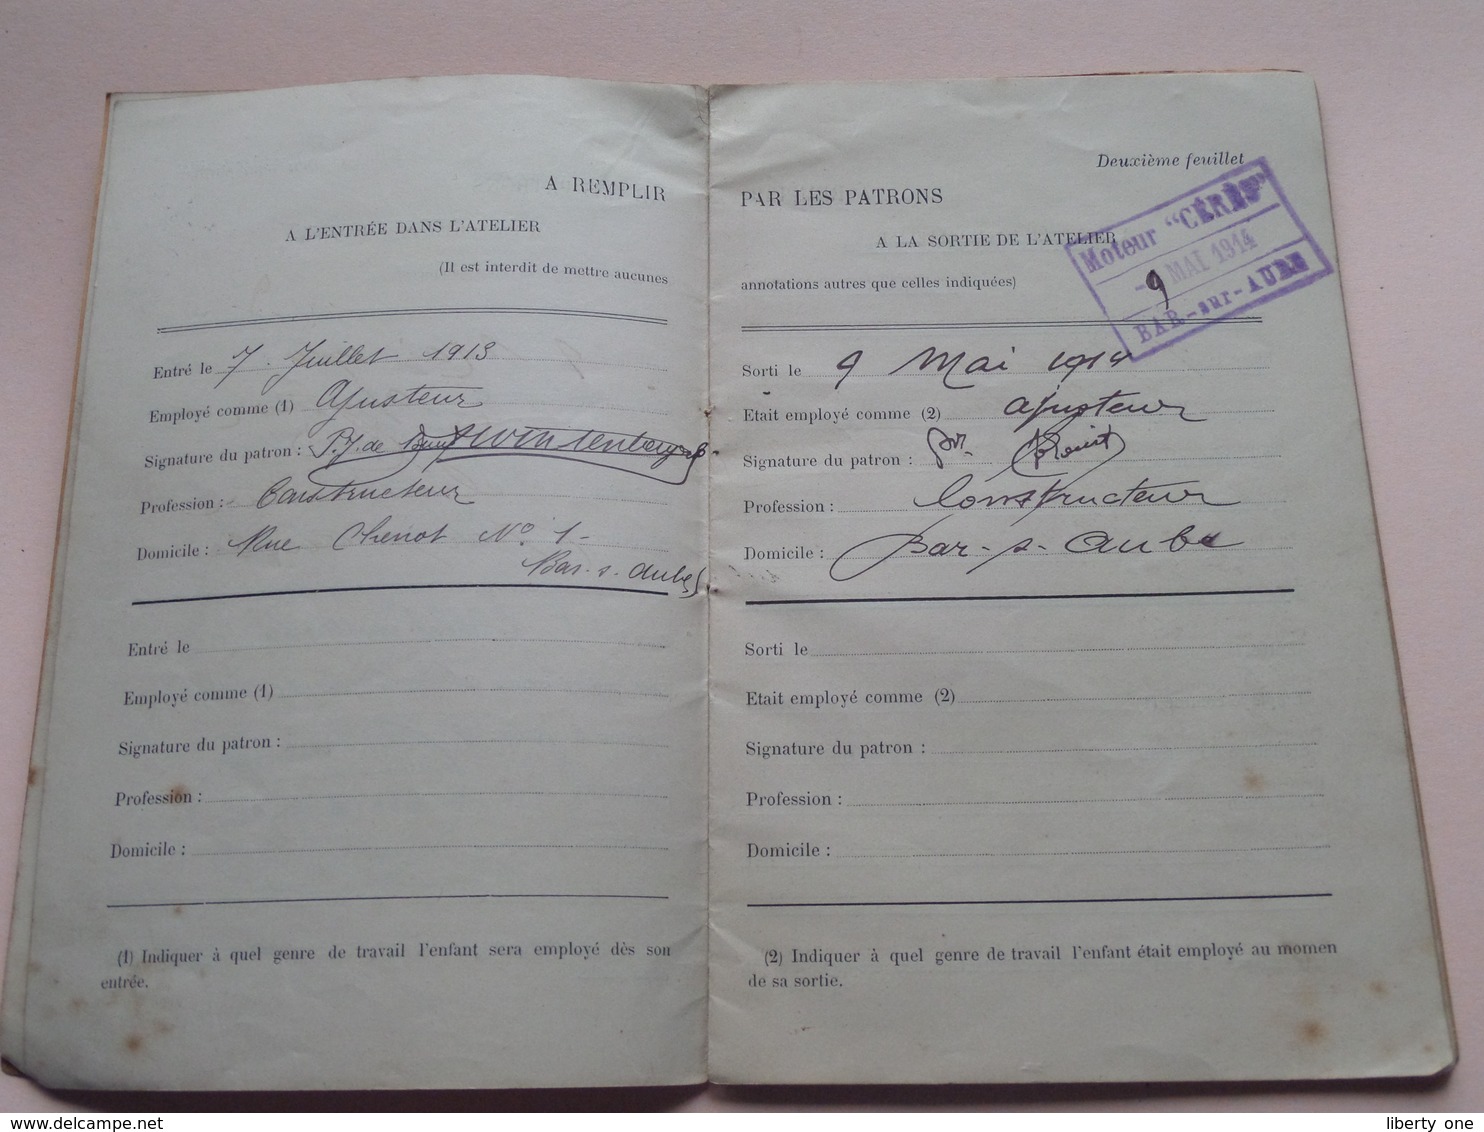 A REMPLIR
A L'ENTRÉE DANS L'ATELIER
(Il est interdit de mettre aucunes
Entré le 7 Juillet 1913
Employé comme (1) Ajusteur
Signature du patron :
Profession : Constructeur
Domicile : Rue Chenot No. 1 -
Bar-s-Aube
Entré le
Employé comme (1)
Signature du patron :
Profession :
Domicile :
(1) Indiquer à quel genre de travail l'enfant sera employé dès son
entrée.
Deuxième feuillet
PAR LES PATRONS
A LA SORTIE DE L'ATELIER
annotations autres que celles indiquées)
Moteur "CÉRÈS"
- 9 MAI 1914
BAR-sur-AUBE
Sorti le 9 Mai 1914
Etait employé comme (2) ajusteur
Signature du patron :
Profession : Constructeur
Domicile : Bar-s-Aube
Sorti le
Etait employé comme (2)
Signature du patron :
Profession :
Domicile :
(2) Indiquer à quel genre de travail l'enfant était employé au momen
de sa sortie.
liberty one